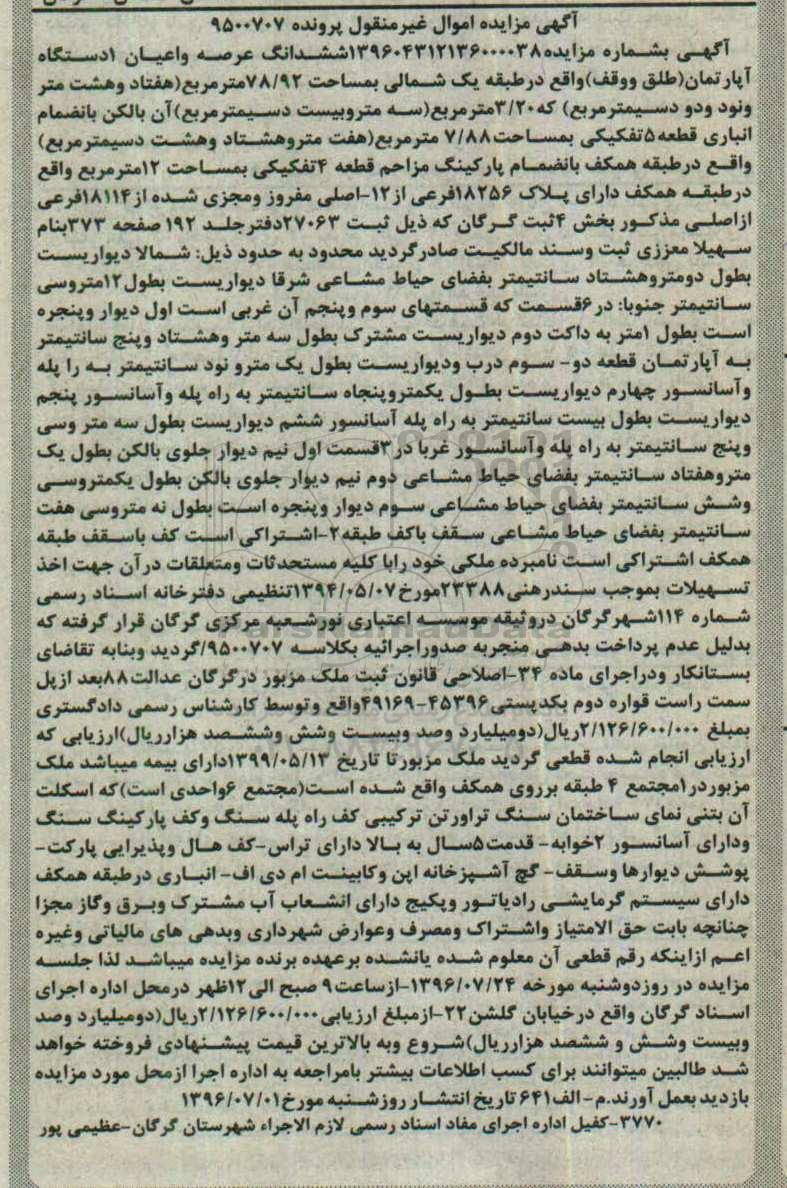 آگهی مزایده اموال غیرمنقول پرونده ۹۵۰۰۷۰۷
آگهی بشماره مزایده۱۳۹۶۰۴۳۱۲۱۳۶۰۰۰۰۳۸ششدانگ عرصه واعیان ۱دستگاه
آپارتمان(طلق ووقف)واقع درطبقه یک شمالی بمساحت ۷۸/۹۲مترمربع(هفتاد وهشت متر
ونود ودو دسیمترمربع) که۳/۲۰مترمربع(سه متروبیست دسیمترمربع)آن بالکن بانضمام
انباری قطعه۵تفکیکی بمساحت۷/۸۸ مترمربع(هفت متروهشتاد وهشت دسیمترمربع)
واقع درطبقه همکف بانضمام پارکینگ مزاحم قطعه ۴تفکیکی بمساحت ۱۲مترمربع واقع
درطبقه همکف دارای پلاک ۱۸۲۵۶فرعی از۱۲-اصلی مفروز ومجزی شده از۱۸۱۱۴فرعی
ازاصلی مذکور بخش ۴ثبت گرگان که ذیل ثبت ۲۷۰۶۳دفترجلد ۱۹۲ صفحه ۳۷۳بنام
سهیلا معززی ثبت وسند مالکیت صادرگردید محدود به حدود ذیل: شمالا دیواریست
بطول دومتروهشتاد سانتیمتر بفضای حیاط مشاعی شرقا دیواریست بطول۱۲متروسی
سانتیمتر جنوبا: در۶قسمت که قسمتهای سوم وپنجم آن غربی است اول دیوار وپنجره
است بطول ۱متر به داکت دوم دیواریست مشترک بطول سه متر وهشتاد وپنج سانتیمتر
به آپارتمان قطعه دو- سوم درب ودیواریست بطول یک مترو نود سانتیمتر به را پله
وآسانسور چهارم دیواریست بطول یکمتروپنجاه سانتیمتر به راه پله وآسانسور پنجم
دیواریست بطول بیست سانتیمتر به راه پله آسانسور ششم دیواریست بطول سه متر وسی
وپنج سانتیمتر به راه پله وآسانسور غربا در۳قسمت اول نیم دیوار جلوی بالکن بطول یک
متروهفتاد سانتیمتر بفضای حیاط مشاعی دوم نیم دیوار جلوی بالکن بطول یکمتروسی
وشش سانتیمتر بفضای حیاط مشاعی سوم دیوار وپنجره است بطول نه متروسی هفت
سانتیمتر بفضای حیاط مشاعی سقف باکف طبقه۲-اشتراکی است کف باسقف طبقه
همکف اشتراکی است نامبرده ملکی خود رابا کلیه مستحدثات ومتعلقات درآن جهت اخذ
تسهیلات بموجب سندرهنی۲۳۳۸۸مورخ۱۳۹۴/۰۵/۰۷تنظیمی دفترخانه اسناد رسمی
شماره ۱۱۴شهرگرگان دروثیقه موسسه اعتباری نورشعبه مرکزی گرگان قرار گرفته که
بدلیل عدم پرداخت بدهی منجربه صدوراجرائیه بکلاسه ۹۵۰۰۷۰۷/گردید وبنابه تقاضای
بستانکار ودراجرای ماده ۳۴-اصلاحی قانون ثبت ملک مزبور درگرگان عدالت۸۸بعد ازپل
سمت راست قواره دوم بکدپستی۴۵۳۹۶-۴۹۱۶۹واقع وتوسط کارشناس رسمی دادگستری
بمبلغ ۲/۱۲۶/۶۰۰/۰۰۰ریال(دومیلیارد وصد وبیست وشش وششصد هزارریال)ارزیابی که
ارزیابی انجام شده قطعی گردید ملک مزبورتا تاریخ ۱۳۹۹/۰۵/۱۳دارای بیمه میباشد ملک
مزبوردر۱مجتمع ۴ طبقه برروی همکف واقع شده است(مجتمع ۶واحدی است)که اسکلت
آن بتنی نمای ساختمان سنگ تراورتن ترکیبی کف راه پله سنگ وکف پارکینگ سنگ
ودارای آسانسور ۲خوابه- قدمت۵سال به بالا دارای تراس-کف هال وپذیرایی پارکت-
پوشش دیوارها وسقف- گچ آشپزخانه اپن وکابینت ام دی اف- انباری درطبقه همکف
دارای سیستم گرمایشی رادیاتور وپکیج دارای انشعاب آب مشترک وبرق وگاز مجزا
چنانچه بابت حق الامتیاز واشتراک ومصرف وعوارض شهرداری وبدهی های مالیاتی وغیره
اعم ازاینکه رقم قطعی آن معلوم شده یانشده برعهده برنده مزایده میباشد لذا جلسه
مزایده در روزدوشنبه مورخه ۱۳۹۶/۰۷/۲۴-ازساعت۹ صبح الی۱۲ظهر درمحل اداره اجرای
اسناد گرگان واقع درخیابان گلشن۲۲-ازمبلغ ارزیابی۲/۱۲۶/۶۰۰/۰۰۰ریال(دومیلیارد وصد
وبیست وشش و ششصد هزارریال)شروع وبه بالاترین قیمت پیشنهادی فروخته خواهد
شد طالبین میتوانند برای کسب اطلاعات بیشتر بامراجعه به اداره اجرا ازمحل مورد مزایده
بازدید بعمل آورند.م-الف۶۴۱ تاریخ انتشار روزشنبه مورخ۱۳۹۶/۰۷/۰۱
۳۷۷۰-کفیل اداره اجرای مفاد اسناد رسمی لازم الاجراء شهرستان گرگان-عظیمی پور